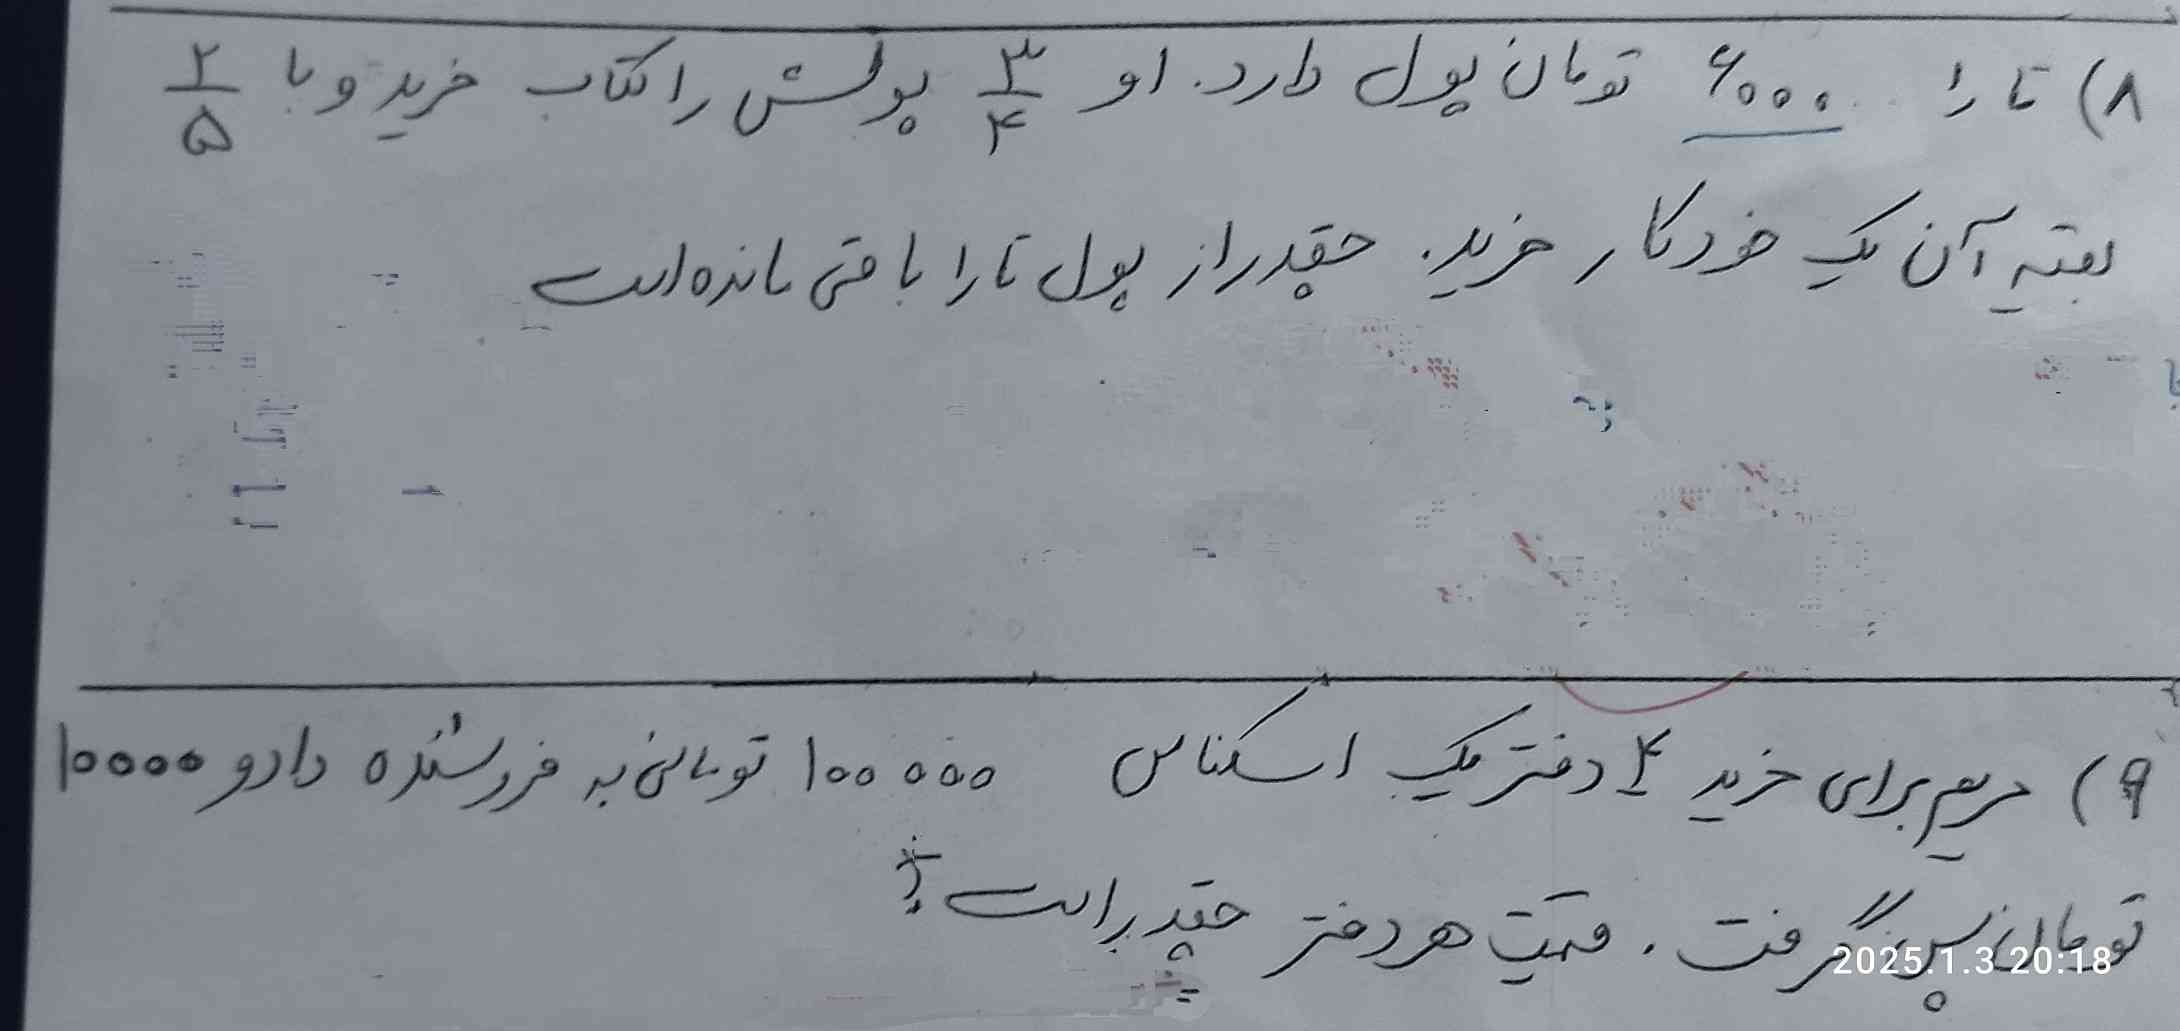 ۸) تارا ۶۰۰۰ تومان پول دارد. او ۳/۴ پولش را کتاب خرید و با ۲/۵
بقیه آن یک خودکار خرید. چقدر از پول تارا باقی مانده است
۹) مریم برای خرید ۴ دفتر یک اسکناس ۱۰۰۰۰۰ تومانی به فروشنده داد و ۱۰۰۰۰
تومان پس گرفت. قیمت هر دفتر چقدر است؟
2025.1.3 20:18